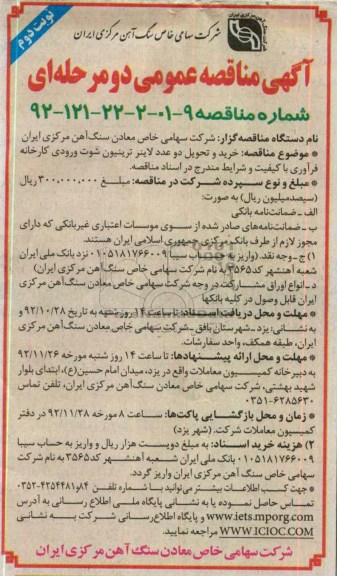 نوبت دوم
شرکت سهامی خاص سنگ آهن مرکزی ایران
آگهی مناقصه عمومی دو مرحله‌ای
شماره مناقصه ۹-۰۱-۲-۲۲-۱۲۱-۹۲
نام دستگاه مناقصه‌گزار: شرکت سهامی خاص معادن سنگ‌آهن مرکزی ایران
* موضوع مناقصه: خرید و تحویل دو عدد لاینر ترینیون شوت ورودی کارخانه
فرآوری با کیفیت و شرایط مندرج در اسناد مناقصه.
* مبلغ و نوع سپرده شرکت در مناقصه: مبلغ ۳۰۰,۰۰۰,۰۰۰ ریال
(سیصدمیلیون ریال) به صورت:
الف - ضمانت‌نامه بانکی
ب - ضمانت‌نامه‌های صادر شده از سوی موسسات اعتباری غیربانکی که دارای
مجوز لازم از طرف بانک مرکزی جمهوری اسلامی ایران هستند.
۱) ج - وجه نقد. (واریز به حساب سیبا ۰۱۰۵۱۸۱۷۶۶۰۰۹ نزد بانک ملی ایران
شعبه آهنشهر کد۳۵۶۵ به نام شرکت سهامی خاص سنگ آهن مرکزی ایران)
د - انواع اوراق مشارکت در وجه شرکت سهامی خاص معادن سنگ‌آهن مرکزی
ایران قابل وصول در کلیه بانکها
* مهلت و محل دریافت اسناد: تا ساعت ۱۴ روز شنبه به تاریخ ۹۲/۱۰/۲۸ و
به نشانی: یزد - شهرستان بافق - شرکت سهامی خاص معادن سنگ آهن مرکزی
ایران، طبقه همکف، واحد سفارشات.
* مهلت و محل ارائه پیشنهادها: تا ساعت ۱۴ روز شنبه مورخه ۹۲/۱۱/۲۶
به دبیرخانه کمیسیون معاملات واقع در یزد، میدان امام حسین(ع)، ابتدای بلوار
شهید بهشتی، شرکت سهامی خاص معادن سنگ آهن مرکزی ایران، تلفن تماس
۰۳۵۱-۶۲۸۵۶۳۰
* زمان و محل بازگشایی پاکت‌ها: ساعت ۸ مورخه ۹۲/۱۱/۲۸ در دفتر
کمیسیون معاملات شرکت. (شهر یزد)
۲) هزینه خرید اسناد: به مبلغ دویست هزار ریال و واریز به حساب سیبا
۰۱۰۵۱۸۱۷۶۶۰۰۹ بانک ملی ایران شعبه آهنشهر کد۳۵۶۵ به نام شرکت
سهامی خاص سنگ آهن مرکزی ایران واریز گردد.
* جهت کسب اطلاعات بیشتر می‌توانید با شماره تلفن ۸۴و۴۲۵۴۴۸۱-۰۳۵۲
تماس حاصل نموده یا به نشانی پایگاه ملی اطلاع رسانی به آدرس
www.iets.mporg.com و پایگاه اطلاع‌رسانی شرکت به نشانی
WWW.ICIOC.COM مراجعه نمایید.
شرکت سهامی خاص معادن سنگ آهن مرکزی ایران